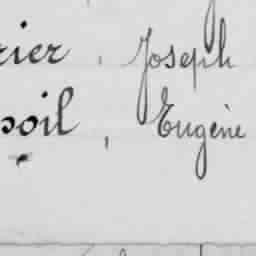 rier, Joseph
poil, Eugène